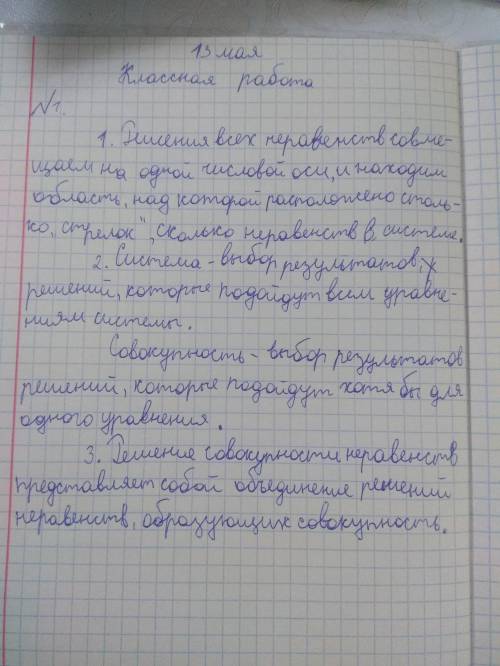 13 мая
Классная работа
№1.
1. Решения всех неравенств совме-
щаем на одной числовой оси, и находим
область, над которой расположено столь-
ко „стрелок", сколько неравенств в системе.
2. Система - выбор результатов,
решений, которые подойдут всем уравне-
ниям системы.
Совокупность - выбор результатов
решений, которые подойдут хотя бы для
одного уравнения.
3. Решение совокупности неравенств
представляет собой объединение решений
неравенств, образующих совокупность.